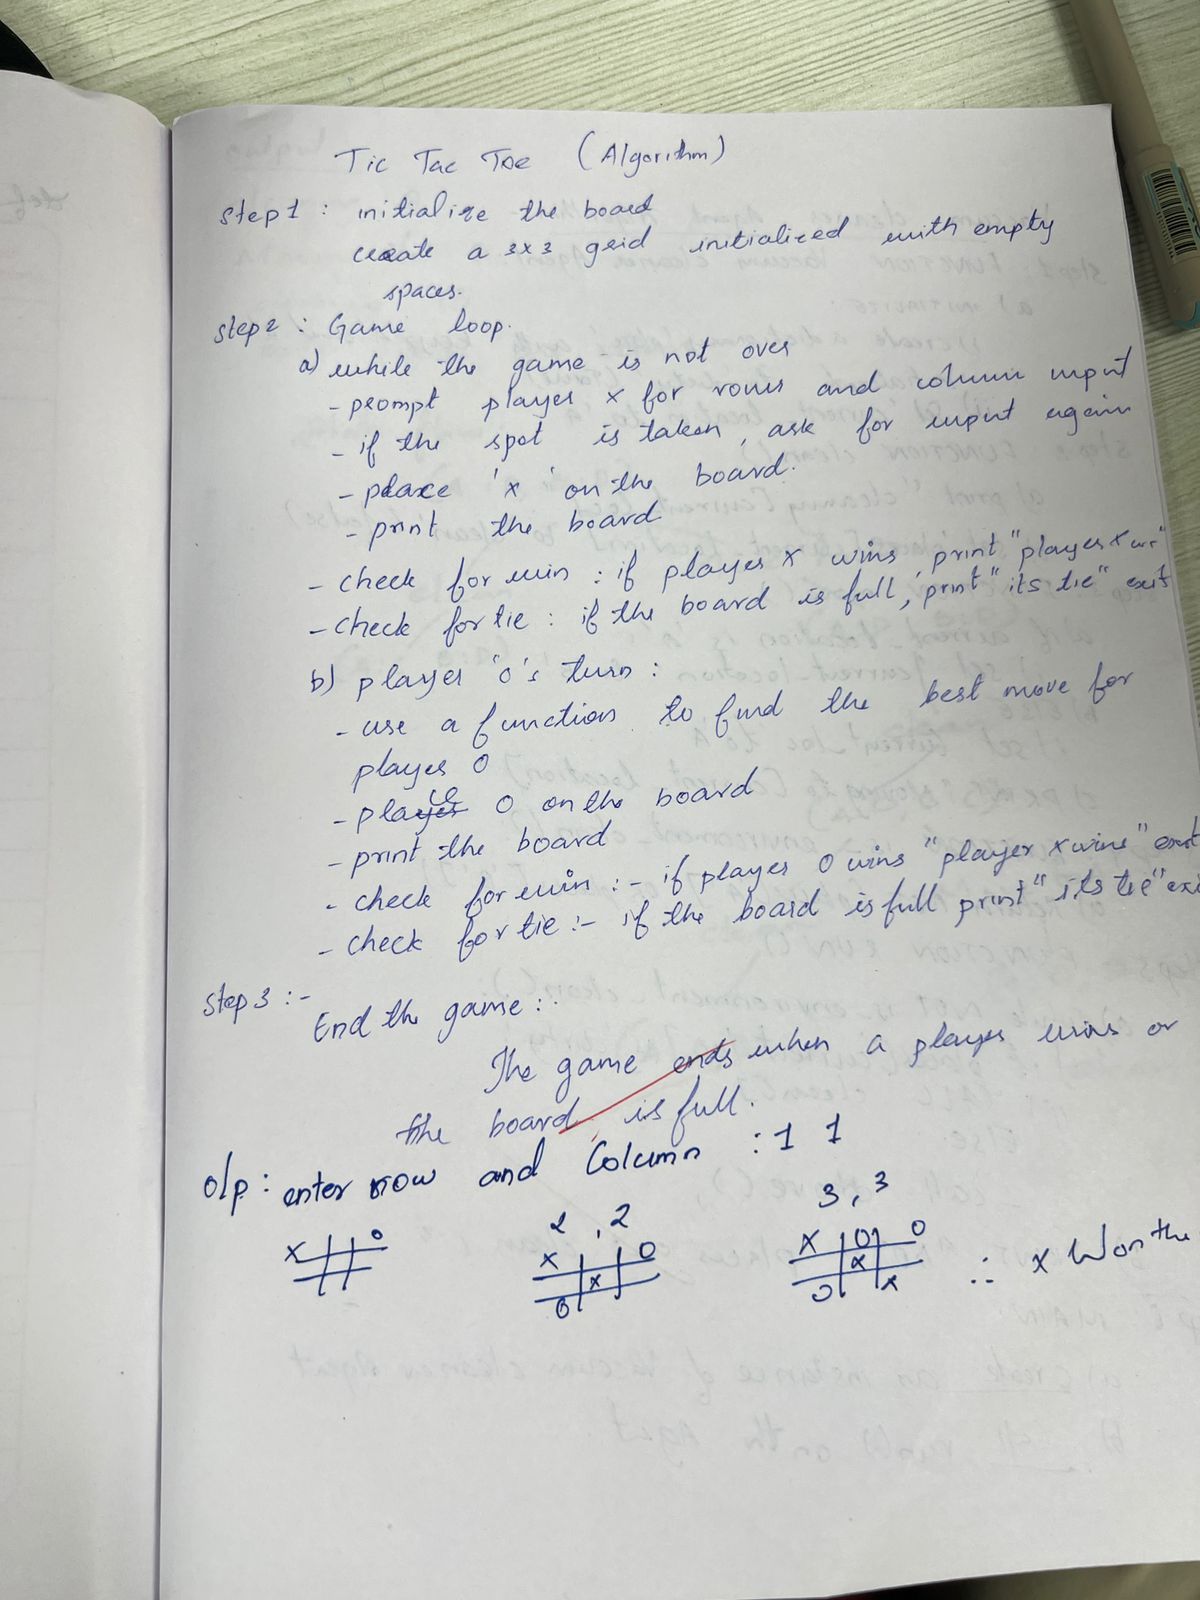 Tic Tac Toe (Algorithm)
step1 : initialize the board
create a 3x3 grid initialized with empty
spaces.
step2 : Game loop.
a) while the game is not over
- prompt player x for rows and column input
- if the spot is taken, ask for input again
- place 'x' on the board.
- print the board
- check for win : if player x wins, print "player x
- check for tie : if the board is full, print "its tie" exit
b) player "o's turn :
- use a function to find the best move for
player O
- place O on the board
- print the board
- check for win :- if player O wins "player x wins" exit
- check for tie :- if the board is full print "its tie" exi
step 3 :-
End the game :.
The game ends when a player wins or
the board is full.
o/p : enter row and Column : 1 1
2 , 2
3 , 3
X O
X O
x
O
X O O
x
O x
∴ x Won the